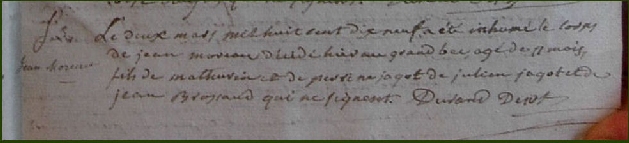 Le deux mars mil huit cent dix neuf a été inhumé le corps
Jean Moreau
de jean moreau décédé hier au grand bec, agé de 11 mois,
fils de mathurin et de perrine jagot de julien jagot et de
jean Brossaud qui ne signent. Durand Desst